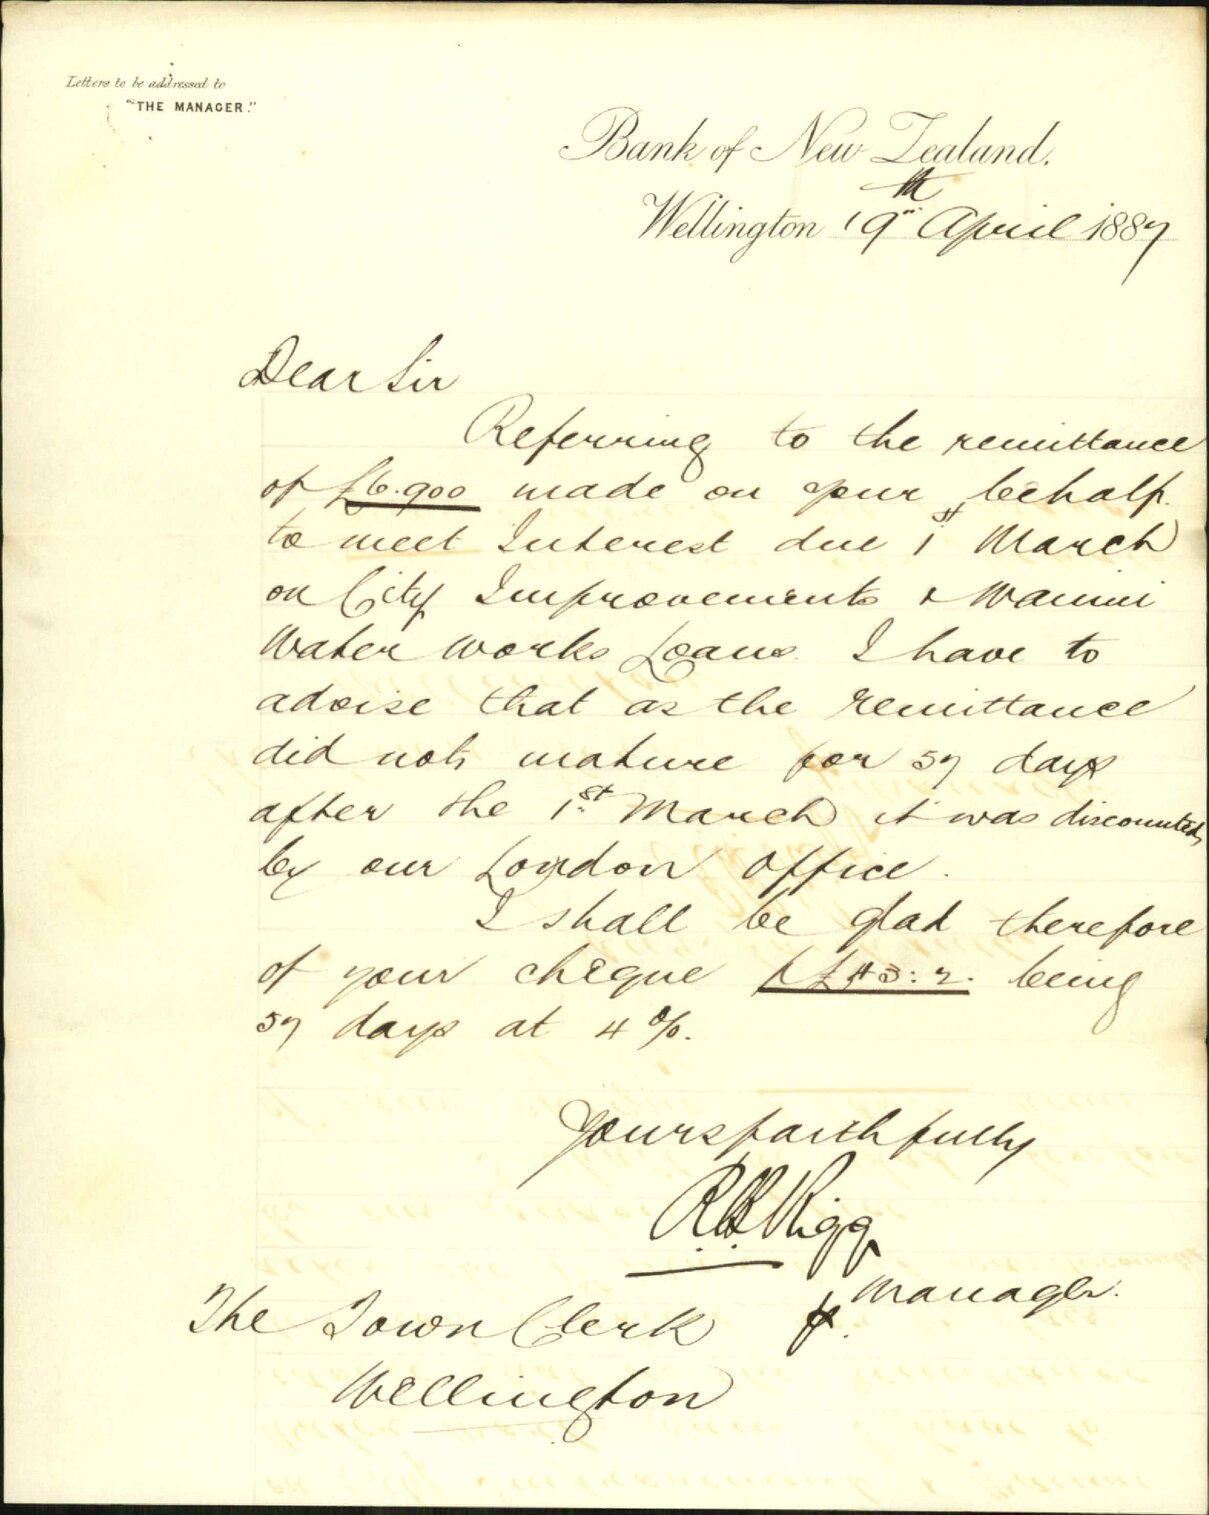 Letters to be addressed to
"THE MANAGER."
Bank of New Zealand.
Wellington 19th April 1887
Dear Sir
Referring to the remittance
of £6.900 made on your behalf
to meet Interest due 1st March
on City Improvements & Wainui
Water Works Loans. I have to
advise that as the remittance
did not mature for 57 days
after the 1st March it was discounted
by our London Office.
I shall be glad therefore
of your cheque £43:2. being
57 days at 4%.
Yours faithfully
R. B. Rigg
p. Manager.
The Town Clerk
Wellington